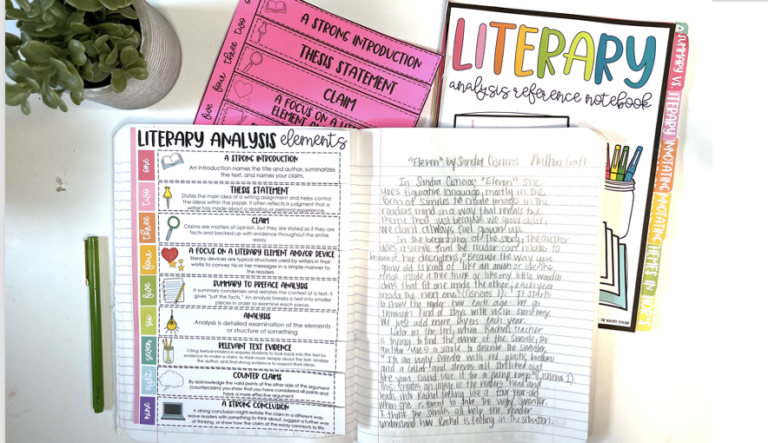 two
three
four
five
A STRONG INTRODUCTION
THESIS STATEMENT
CLAIM
A FOCUS ON A
ELEMENT
LITERARY
analysis reference notebook
SUMMARY VS
LITERARY
ANNOTATING
ANNOTATING
LITERARY ANALYSIS elements
one
A STRONG INTRODUCTION
An introduction names the title and author, summarizes
the text, and names your claim.
two
THESIS STATEMENT
States the main idea of a writing assignment and helps control
the ideas within the paper. It often reflects a judgment that a
writer has made about a reading or personal
three
CLAIM
Claims are matters of opinion, but they are stated as if they are
facts and backed up with evidence throughout the entire
essay.
four
A FOCUS ON A LITERARY ELEMENT AND/OR DEVICE
Literary devices are typical structures used by writers in their
works to convey his or her messages in a simple manner to
the readers
five
SUMMARY TO PREFACE ANALYSIS
A summary condenses and restates the context of a text. It
gives "just the facts." An analysis breaks a text into smaller
pieces in order to examine each piece.
six
ANALYSIS
Analysis is detailed examination of the elements
or structure of something
seven
RELEVANT TEXT EVIDENCE
Citing textual evidence requires students to look back into the text for
evidence to make a claim, to think more deeply about the text, analyze
the author, and find strong evidence to support their ideas.
eight
COUNTER CLAIMS
By acknowledge the valid points of the other side of the argument
(counterclaim) you show that you have considered all points and
have a more effective argument.
nine
A STRONG CONCLUSION
A strong conclusion might restate the claim in a different way,
leave readers with something to think about, suggest a further way
of thinking, or show how the claim of the essay connects to the
"Eleven" by Sandra Cisneros Author's Craft
In Sandra Cisneros' "Eleven" she
uses figurative language, mostly in the
form of similes to create images in the
readers mind in a way that reveals the
theme: just because we grow older,
we don't always feel grown up.
In the beginning of the story, the author
uses a simile that the reader can relate to
because of her descriptors. "Because the way you
grow old is kind of like an onion or like the
rings inside a tree trunk or like my little wooden
dolls that fit one inside the other, each year
inside the next one." (Cisneros 1). It starts
to show the reader how each age we go
through
we just add more layers each year.
Later in the text, when Rachel's teacher
is trying to find the owner of the sweater, the
author uses a simile to describe the sweater.
"It's an ugly sweater with red plastic buttons
and a collar and sleeves all stretched out
like you could use it for a jump rope" (Cisneros 1)
This creates an image in the readers head and
leads into Rachel feeling like a four year-old
when she is forced to take the ugly sweater.
I think the similes all help the reader
understand how Rachel is feeling in the situation.